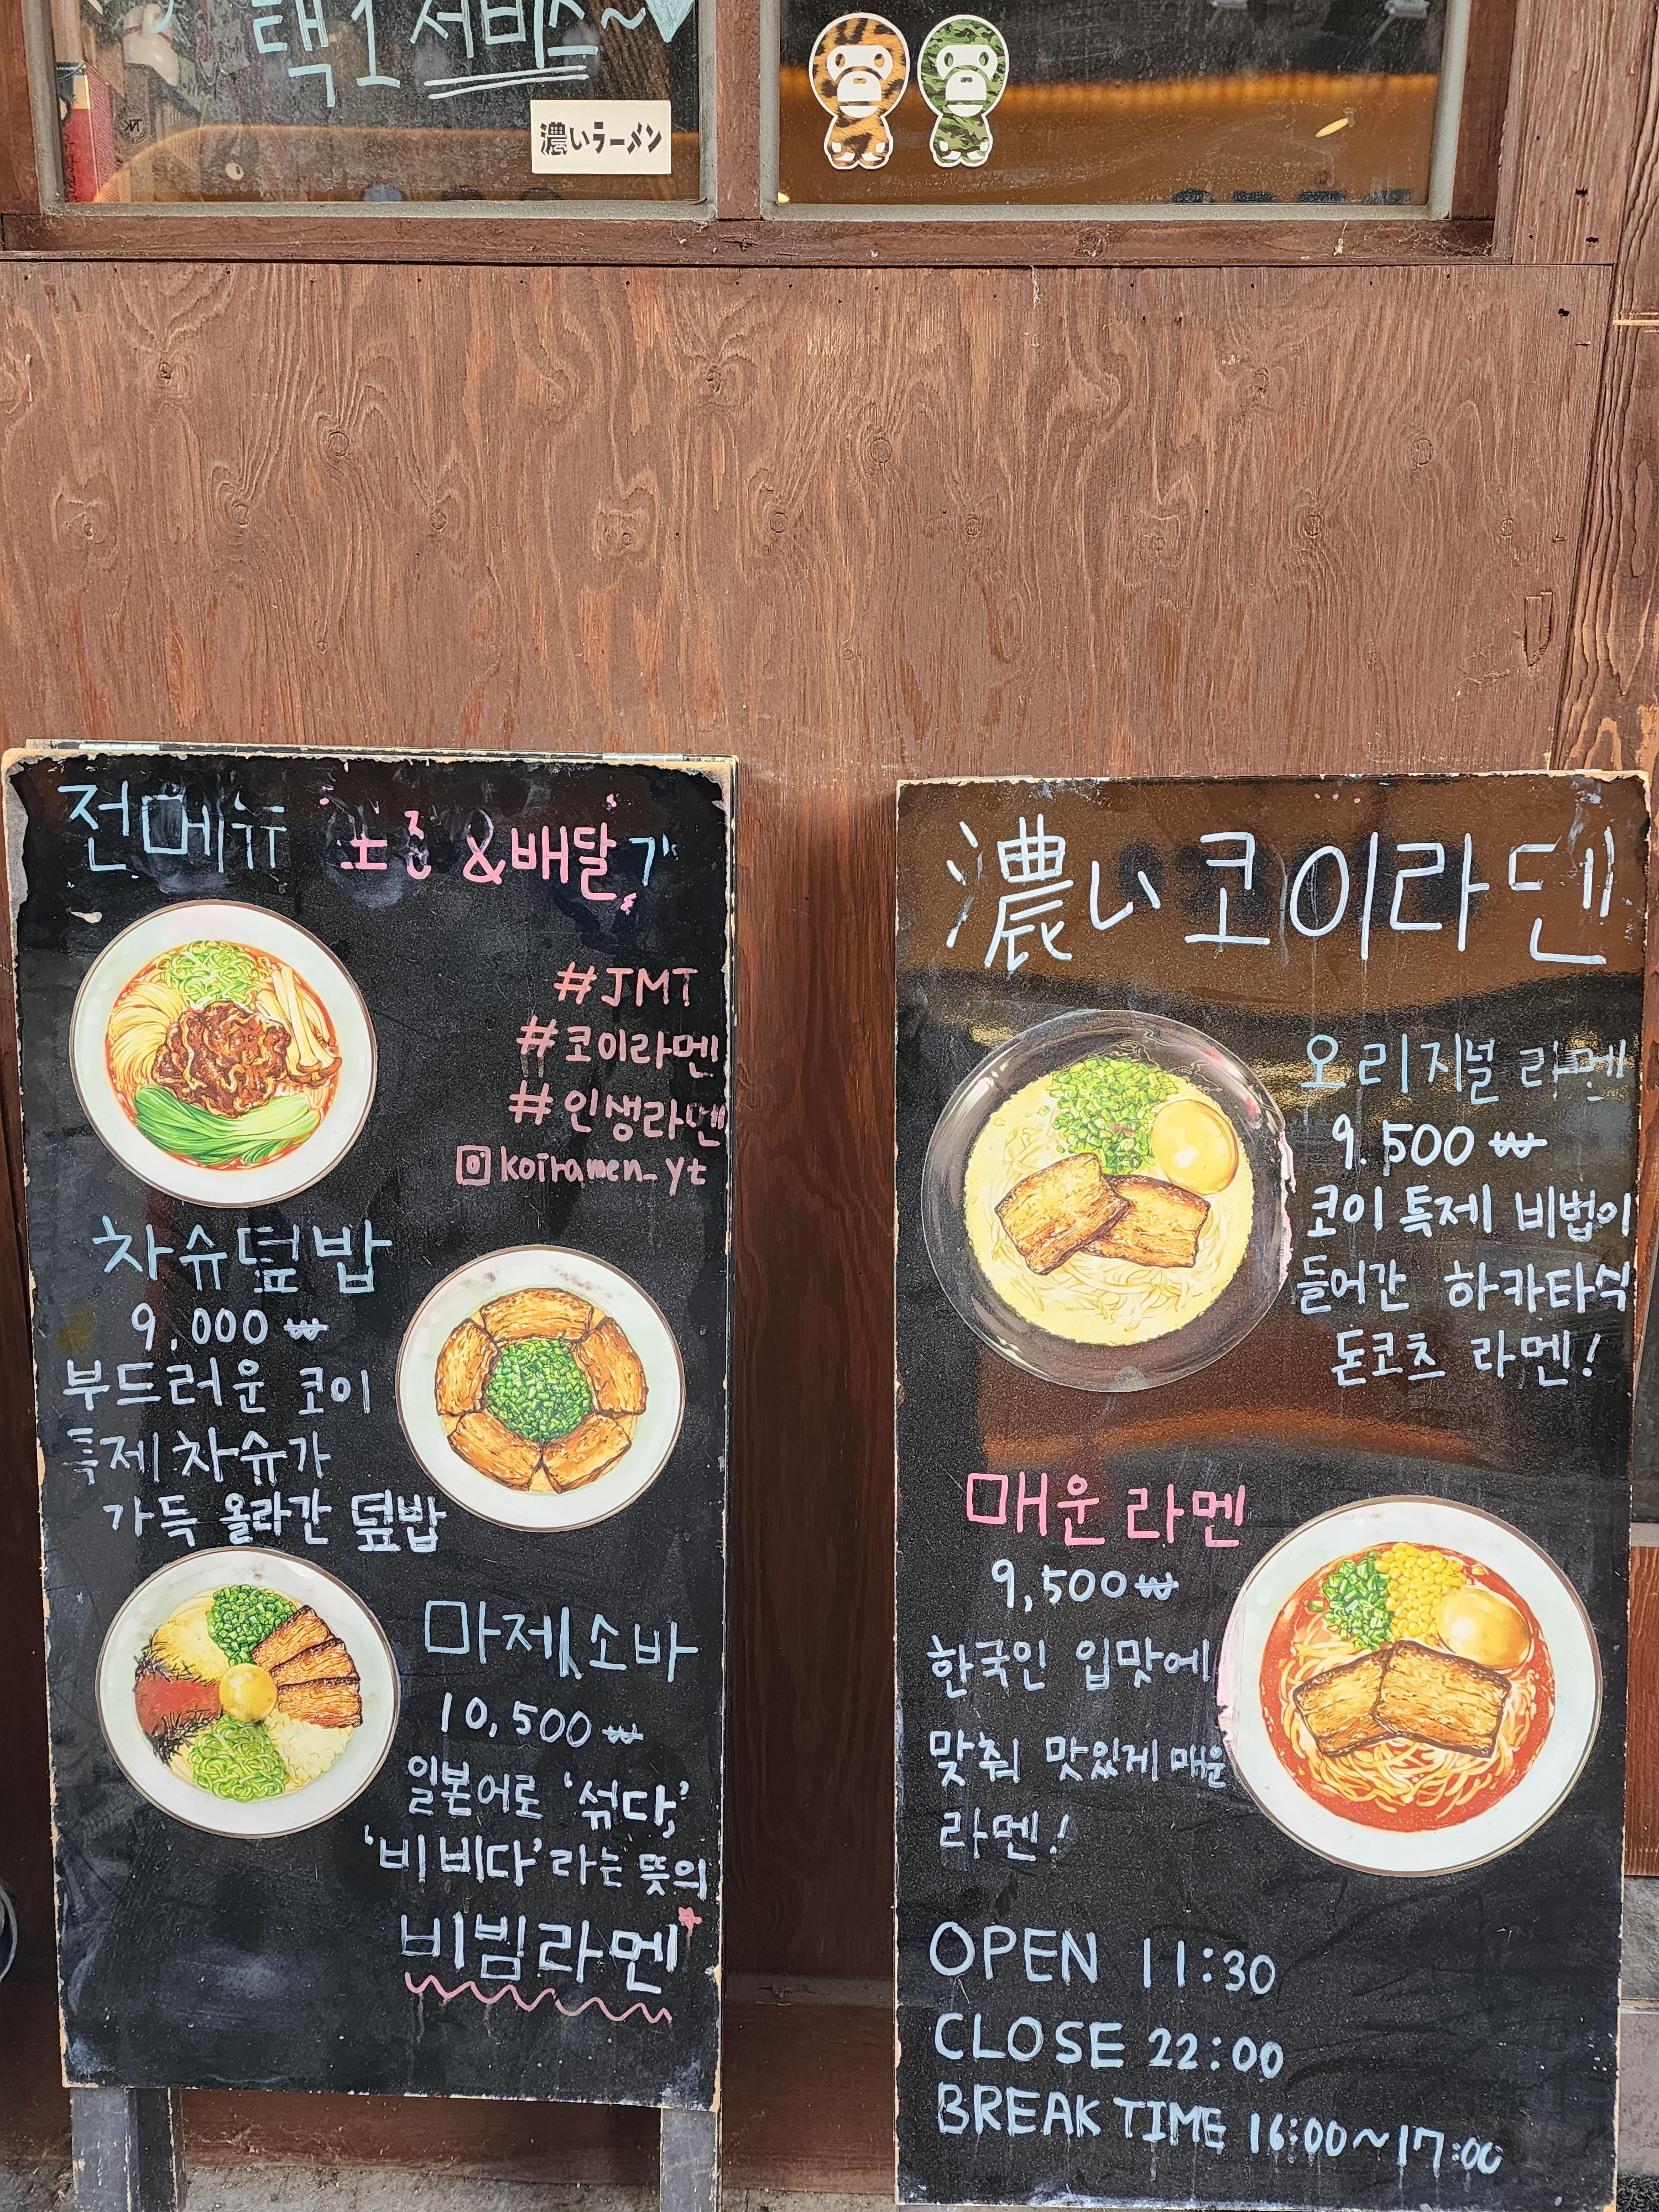 택1 서비스~
濃いラーメン
전메뉴 &배달
#JMT
#코이라멘
#인생라멘
koiramen_yt
차슈덮밥
9,000₩
부드러운 코이
특제 차슈가
가득 올라간 덮밥
마제소바
10,500₩
일본어로 '섞다,'
'비비다'라는 뜻의
비빔라멘
濃い 코이라멘
오리지널 라멘
9.500₩
코이 특제 비법이
들어간 하카타식
돈코츠 라멘!
매운 라멘
9,500₩
한국인 입맛에
맞춰 맛있게 매운
라멘!
OPEN 11:30
CLOSE 22:00
BREAK TIME 16:00~17:00